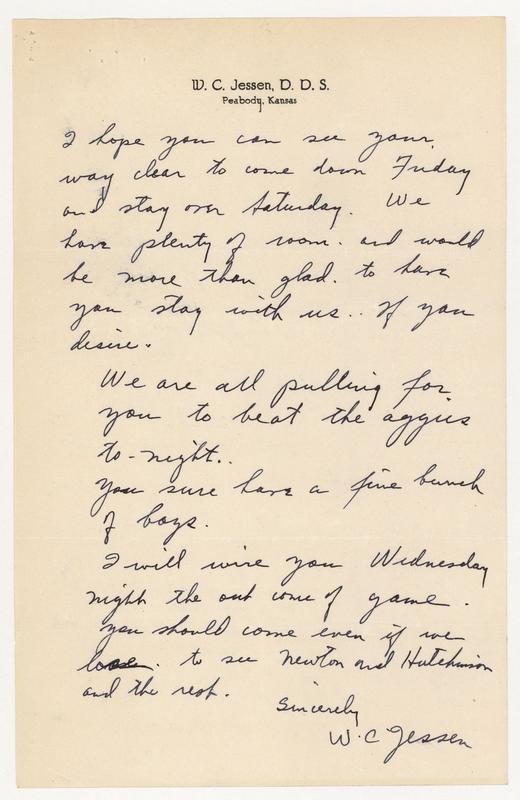 W. C. Jessen, D. D. S.
Peabody, Kansas
I hope you can see your
way clear to come down Friday
and stay over Saturday. We
have plenty of room. and would
be more than glad. to have
you stay with us.. If you
desire.
We are all pulling for
you to beat the aggies
to-night..
You sure have a fine bunch
of boys.
I will wire you Wednesday
night the out come of game.
you should come even if we
lose. to see Newton and Hutchinson
and the rest.
Sincerely
W. C Jessen